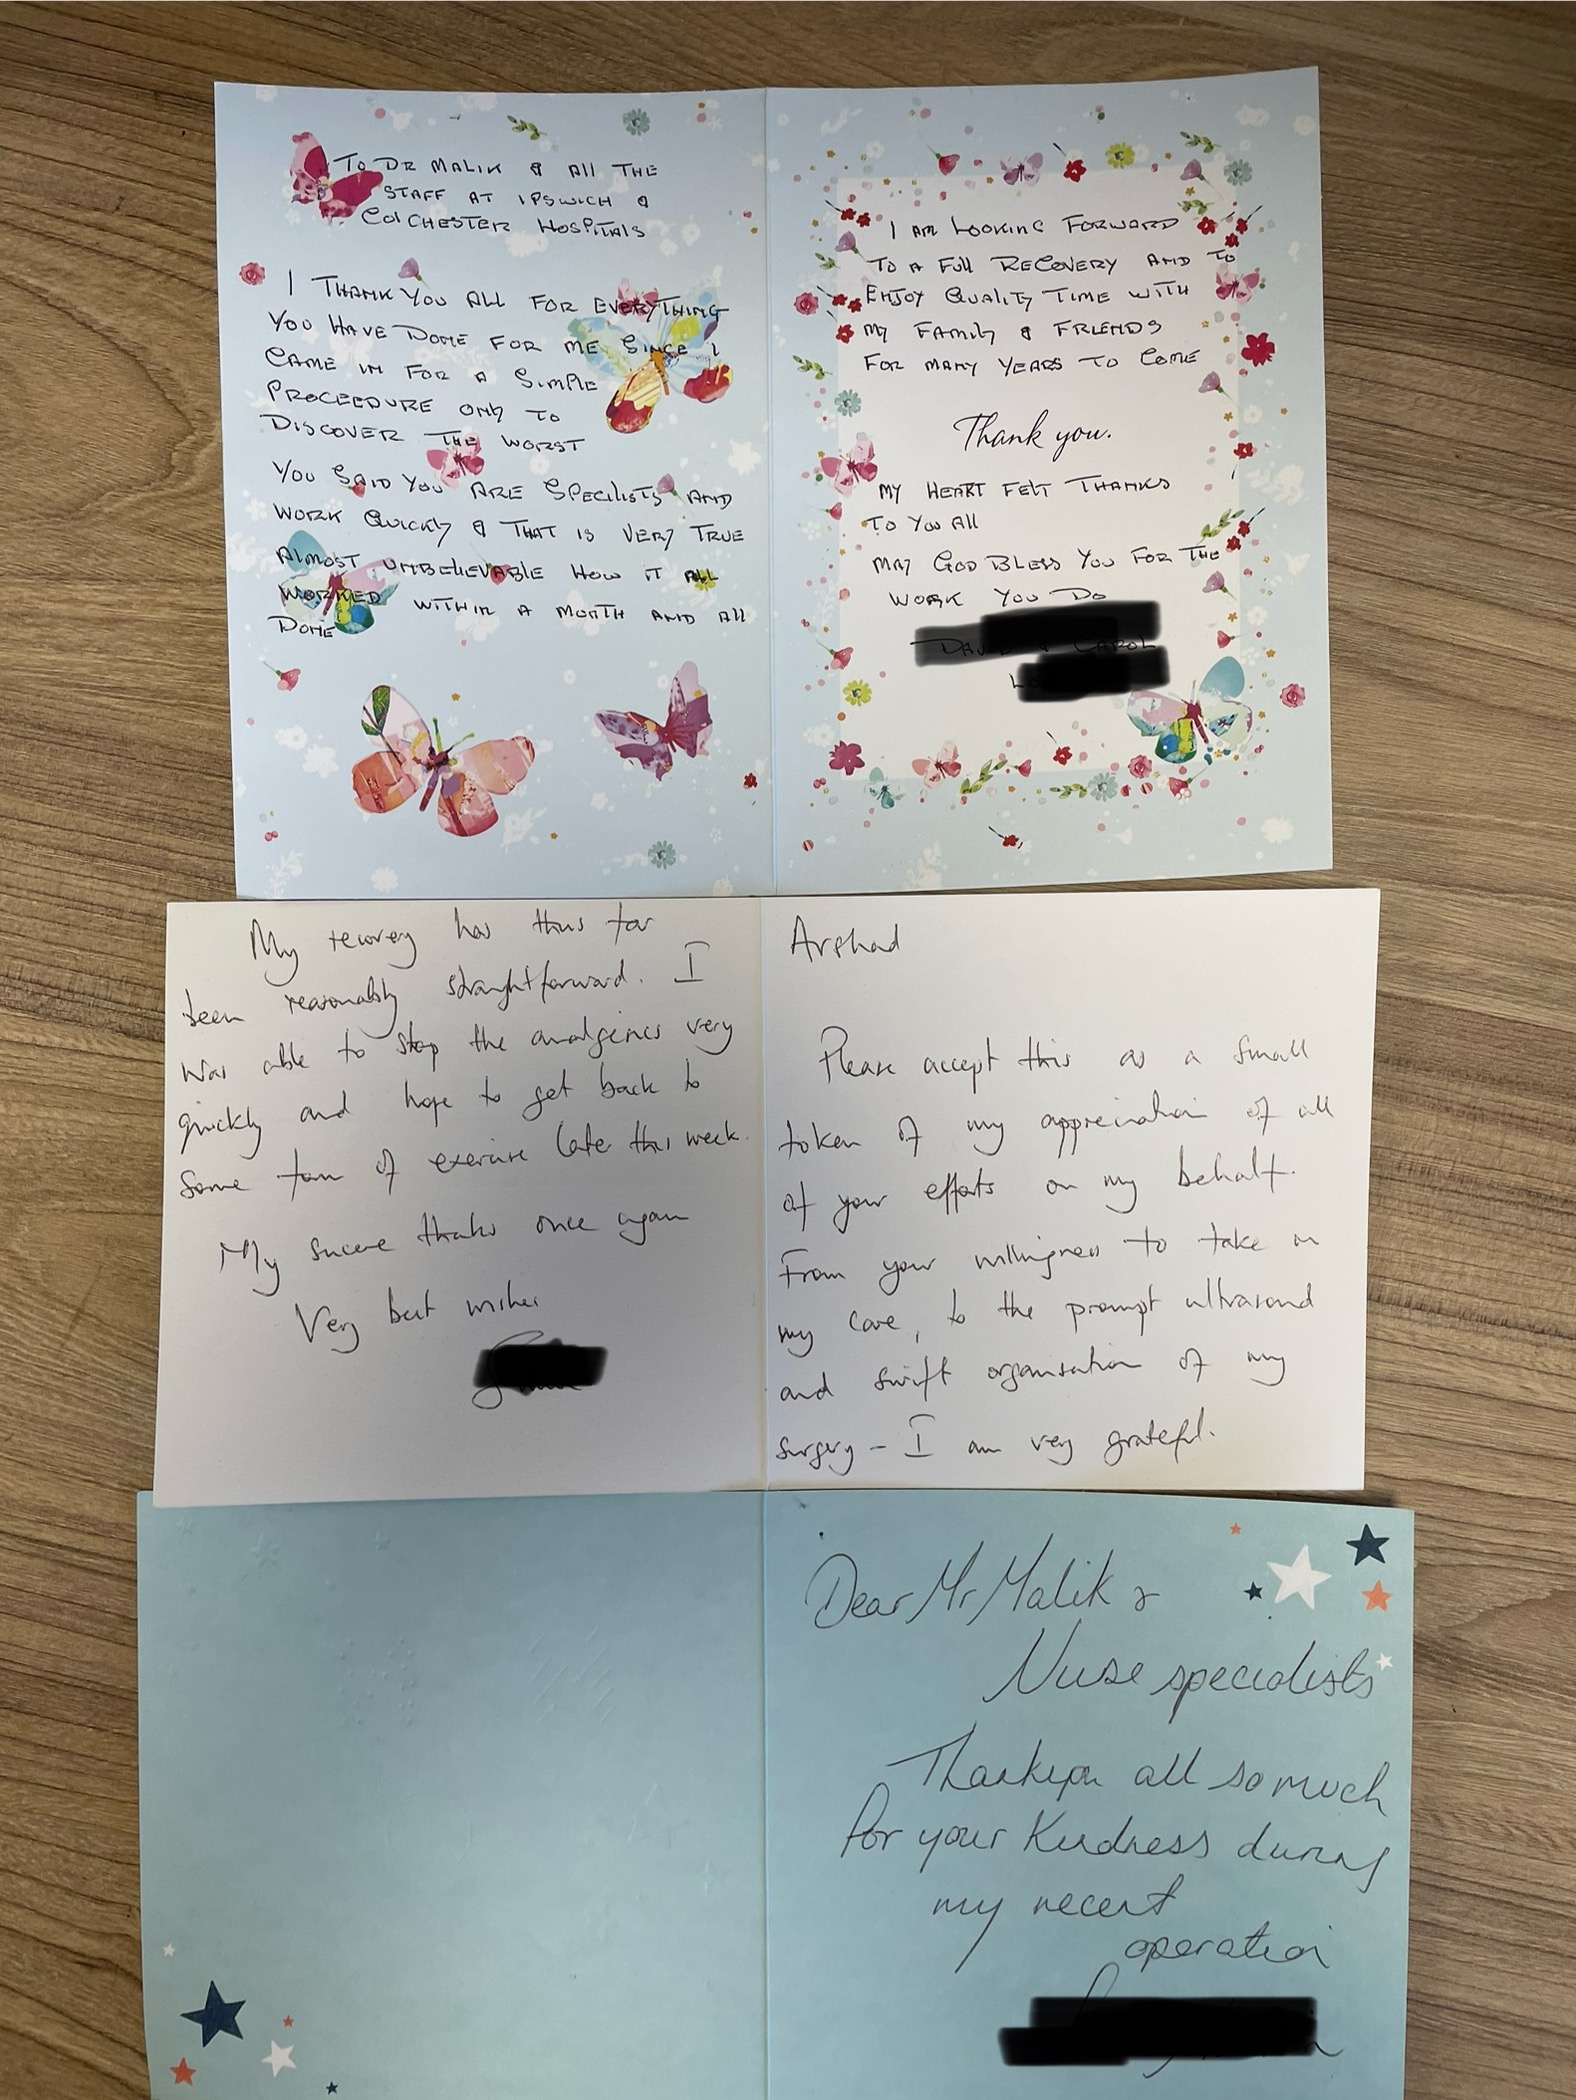 To DR MALIK & All THE
STAFF AT IPSWICH &
COlCHESTER HOSPITAlS
I THANK YOU ALL FOR EVERYTHING
YOU HAVE DONE FOR ME SINCE I
CAME IN FOR A SIMPLE
PROCEEDURE ONlY TO
DISCOVER THE WORST
YOU SAID YOU ARE SPECIlISTS AND
WORK QUICKlY & THAT IS VERY TRUE
AlMOST UNBElIEVABLE HOW IT ALL
WORKED WITHIN A MONTH AND All
DONE
I AM LOOKING FORWARD
TO A FUll RECOVERY AND TO
ENJOY QUALITY TIME WITH
MY FAMILY & FRIENDS
FOR MANY YEARS TO COME
Thank you.
MY HEART FELT THANKS
TO YOU All
MAY GOD BLESS YOU FOR THE
WORK YOU DO
My recovery has thus far
been reasonably straightforward. I
was able to stop the analgesics very
quickly and hope to get back to
some form of exercise later this week.
My sincere thanks once again
Very best wishes
Arshad
Please accept this as a small
token of my appreciation of all
of your efforts on my behalf.
From your willingness to take on
my care, to the prompt ultrasound
and swift organisation of my
surgery - I am very grateful.
Dear Mr Malik &
Nurse specialists
Thankyou all so much
for your Kindness during
my recent
operation